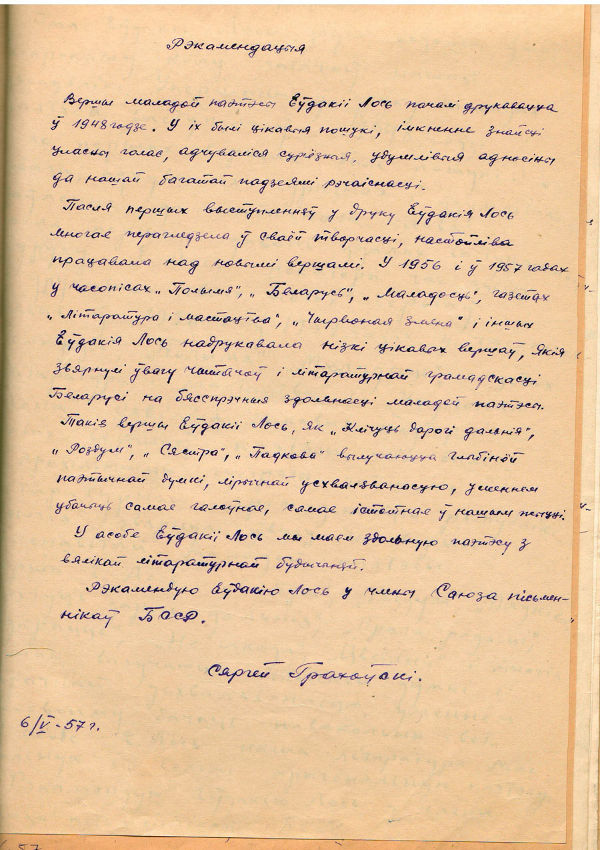 Рэкамендацыя
Вершы маладой паэтэсы Еўдакіі Лось пачалі друкавацца
ў 1948 годзе. У іх былі цікавыя пошукі, імкненне знайсці
уласны голас, адчуваліся сур'ёзныя, удумлівыя адносіны
да нашай багатай падзеямі рэчаіснасці.
Пасля першых выступленняў у друку Еўдакія Лось
многае перагледзела ў сваёй творчасці, настойліва
працавала над новымі вершамі. У 1956 і ў 1957 годах
у часопісах „Полымя", „Беларусь", „Маладосць", газетах
„Літаратура і мастацтва", „Чырвоная змена" і іншых
Еўдакія Лось надрукавала нізкі цікавых вершаў, якія
звярнулі ўвагу чытачоў і літаратурнай грамадскасці
Беларусі на бясспрэчныя здольнасці маладой паэтэсы.
Такія вершы Еўдакіі Лось, як „Клічуць дарогі дальнія",
„Роздум", „Сястра", „Падкова" вылучаюцца глыбінёй
паэтычнай думкі, лірычнай усхваляванасцю, уменнем
убачыць самае галоўнае, самае істотнае ў нашым жыцці.
У асобе Еўдакіі Лось мы маем здольную паэтэсу з
вялікай літаратурнай будучыняй.
Рэкамендую Еўдакію Лось у члены Саюза пісьмен-
нікаў БССР.
Сяргей Грахоўскі.
6/V-57 г.
57